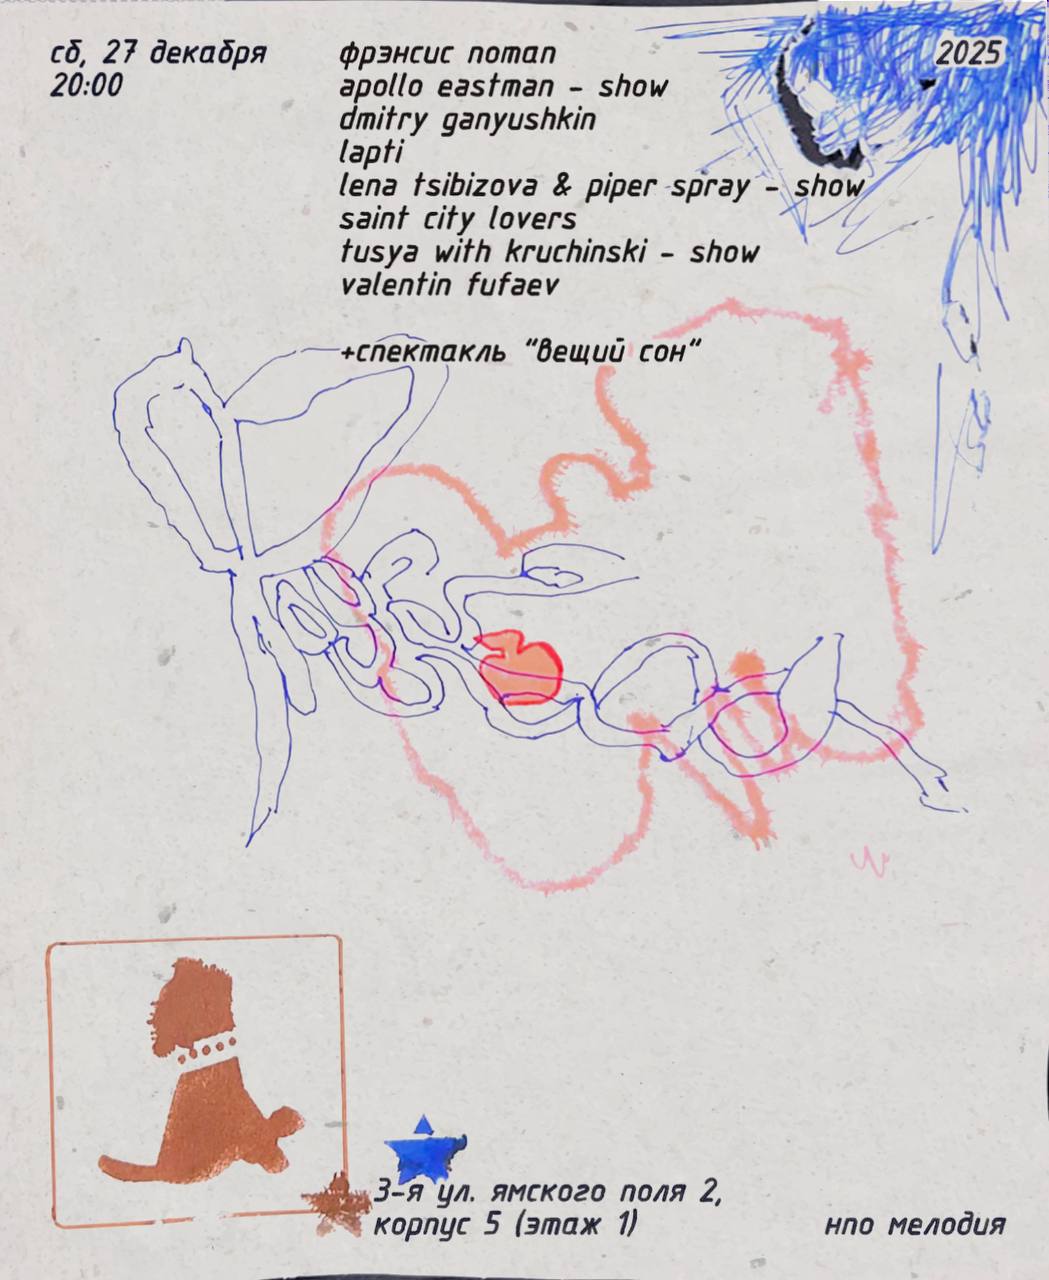 сб, 27 декабря
20:00
фрэнсис noman
apollo eastman - show
dmitry ganyushkin
lapti
lena tsibizova & piper spray - show
saint city lovers
tusya with kruchinski - show
valentin fufaev
+спектакль “вещий сон“
2025
3-я ул. ямского поля 2,
корпус 5 (этаж 1)
нпо мелодия